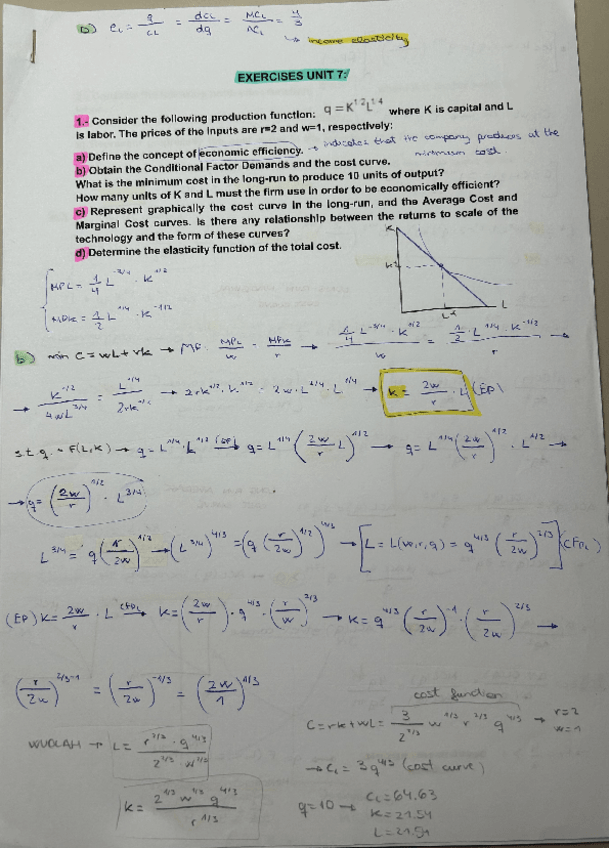 D) eL = q/CL = dCL/dq = MCL/ACL = 4/3
↳ income elasticity
EXERCISES UNIT 7:
1.- Consider the following production function: q = K^1/2 L^1/4 where K is capital and L
is labor. The prices of the inputs are r=2 and w=1, respectively:
a) Define the concept of economic efficiency. → indicates that the company produces at the
minimum cost
b) Obtain the Conditional Factor Demands and the cost curve.
What is the minimum cost in the long-run to produce 10 units of output?
How many units of K and L must the firm use in order to be economically efficient?
c) Represent graphically the cost curve in the long-run, and the Average Cost and
Marginal Cost curves. Is there any relationship between the returns to scale of the
technology and the form of these curves?
d) Determine the elasticity function of the total cost.
K
K*
L*
L
MPL = 1/4 L^-3/4 · K^1/2
MPK = 1/2 L^1/4 · K^-1/2
b) min C = wL + rK → MPL/w = MPK/r → (1/4 L^-3/4 · K^1/2)/w = (1/2 L^1/4 · K^-1/2)/r
→ K^1/2/4wL^3/4 = L^1/4/2rK^1/2 → 2rK^1/2 · K^1/2 = 2w · L^3/4 · L^1/4 → K = 2w/r · L (EP)
s.t q = F(L,K) → q = L^1/4 · K^1/2 (EP)→ q = L^1/4 (2w/r L)^1/2 → q = L^1/4 (2w/r)^1/2 · L^1/2 →
→ q = (2w/r)^1/2 · L^3/4
L^3/4 = q (r/2w)^1/2 → (L^3/4)^4/3 = (q (r/2w)^1/2)^4/3 → [L = L(w,r,q) = q^4/3 (r/2w)^2/3] (CFDL)
(EP) K = 2w/r · L (CFDL)→ K = (2w/r) · q^4/3 · (r/w)^2/3 → K = q^4/3 (r/2w)^-1 · (r/2w)^2/3 →
(r/2w)^2/3-1 = (r/2w)^-1/3 = (2w/1)^1/3
cost function
C = rK + wL = 3/2^2/3 w^1/3 r^2/3 q^4/3 → r=2
w=1
WUOLAH → L = r^2/3 · q^4/3 / 2^2/3 · w^2/3
→ CL = 3q^4/3 (cost curve)
K = 2^1/3 w^1/3 q^4/3 / r^1/3
q=10 → CL = 64.63
K = 21.54
L = 21.51